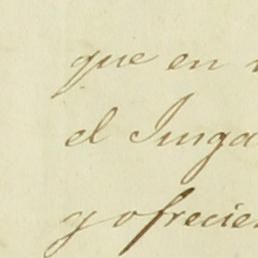 que en
el Juzga
y ofrecien